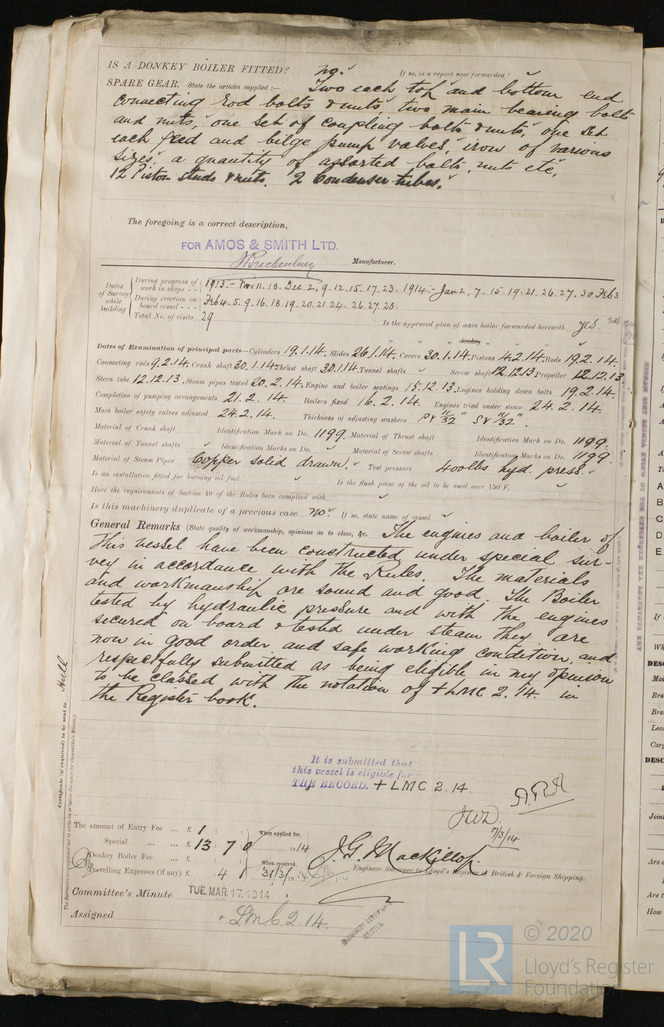 IS A DONKEY BOILER FITTED? no. If so, is a report now forwarded?
SPARE GEAR. State the articles supplied:— Two each top and bottom end
connecting rod bolts & nuts, two main bearing bolts
and nuts, one set of coupling bolts & nuts, one set
each feed and bilge pump valves, iron of various
sizes, a quantity of assorted bolts, nuts etc,
12 Piston studs & nuts. 2 Condenser tubes.
The foregoing is a correct description,
FOR AMOS & SMITH LTD.
Manufacturer.
Dates of Survey while building
During progress of work in shops - - 1913:- Nov 11. 18. Dec. 2, 9. 12. 15. 17. 23. 1914:- Jan 2, 7. 15. 19. 21. 26. 27. 30 Feb 3
During erection on board vessel - - - Feb 4. 5. 9. 16. 18. 19. 20. 21. 24. 26. 27. 28.
Total No. of visits 29
Is the approved plan of main boiler forwarded herewith yes.
" " " donkey " " "
Dates of Examination of principal parts—Cylinders 19.1.14. Slides 26.1.14. Covers 30.1.14. Pistons 4.2.14. Rods 19.2.14.
Connecting rods 9.2.14. Crank shaft 30.1.14 Thrust shaft 30.1.14. Tunnel shafts Screw shaft 12.12.13. Propeller 12.12.13.
Stern tube 12.12.13. Steam pipes tested 20.2.14. Engine and boiler seatings 15.12.13. Engines holding down bolts 19.2.14.
Completion of pumping arrangements 21.2.14. Boilers fixed 16.2.14. Engines tried under steam 24.2.14.
Main boiler safety valves adjusted 24.2.14. Thickness of adjusting washers PV 11/32" SV 11/32".
Material of Crank shaft Identification Mark on Do. 1199. Material of Thrust shaft Identification Mark on Do. 1199.
Material of Tunnel shafts Identification Marks on Do. Material of Screw shafts Identification Marks on Do. 1199.
Material of Steam Pipes Copper solid drawn. Test pressure 400lbs hyd press.
Is an installation fitted for burning oil fuel Is the flash point of the oil to be used over 150°F.
Have the requirements of Section 49 of the Rules been complied with
Is this machinery duplicate of a previous case no. If so, state name of vessel
General Remarks (State quality of workmanship, opinions as to class, &c. The engines and boiler of
this vessel have been constructed under special sur-
vey in accordance with the Rules. The materials
and workmanship are sound and good. The Boiler
tested by hydraulic pressure and with the engines
secured on board & tested under steam they are
now in good order and safe working condition, and
respectfully submitted as being eligible in my opinion
to be classed with the notation of +LMC 2.14. in
the Register book.
It is submitted that
this vessel is eligible for
THE RECORD. + LMC 2.14.
7/3/14
The amount of Entry Fee .. £ 1 : : When applied for,
Special .. .. £ 13 : 7 : 0 14
Donkey Boiler Fee .. £ : : When received,
Travelling Expenses (if any) £ : 4 : 31/3/14
J.G. Mackillop.
Engineer Surveyor to Lloyd's Register of British & Foreign Shipping.
Committee's Minute TUE. MAR 17. 1914
Assigned + LMC 2.14.
Certificate (if required) to be sent to Hull
© 2020
LR Lloyd's Register
Foundation